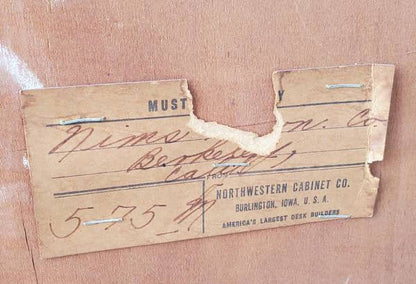 MUST Y
Nims on. Co
Berkeley
Calif
FROM
575 M
NORTHWESTERN CABINET CO.
BURLINGTON, IOWA, U. S. A.
AMERICA'S LARGEST DESK BUILDERS